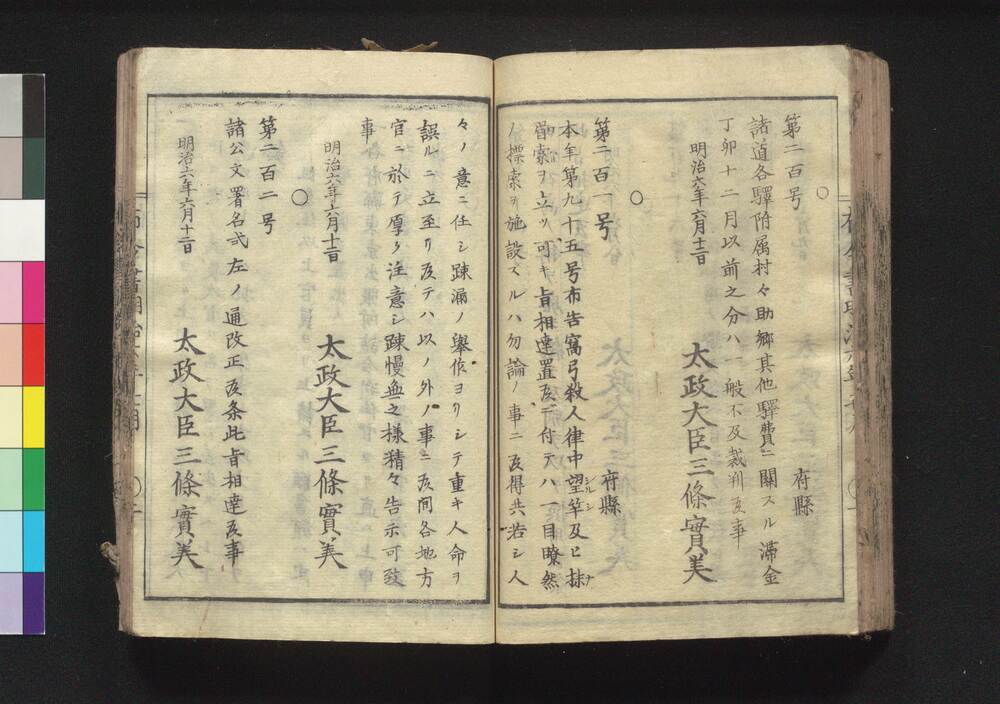 ○
第二百号
府縣
諸道各驛附属村々助郷其他驛費ニ關スル滞金
丁卯十二月以前之分ハ一般不及裁判候事
明治六年六月十二日
太政大臣三條實美
○
第二百一号
府縣
本年第九十五号布告窩弓殺人律中望竿及ヒ抹
眉索ヲ立ツ可キ旨相達置候ニ付テハ一目瞭然
ノ標索ヲ施設スルハ勿論ノ事ニ候得共若シ人
々ノ意ニ任シ踈漏ノ擧作ヨリシテ重キ人命ヲ
誤ルニ立至リ候テハ以ノ外ノ事ニ候間各地方
官ニ於テ厚ク注意シ踈慢無之様精々告示可致
事
明治六年六月十二日
太政大臣三條實美
○
第二百二号
諸公文署名式左ノ通改正候条此旨相達候事
明治六年六月十二日
太政大臣三條實美